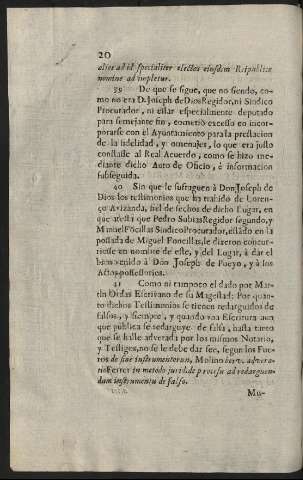 20
alios ad id specialiter electos eiusdem Reipublicæ
nomine adimpletur.
39 De que se sigue, que no siendo, co-
mo no era D. Joseph de Dios Regidor, ni Sindico
Procurador, ni estar especialmente deputado
para semejante fin, cometiò excesso en incor-
porarse con el Ayuntamiento para la prestacion
de la fidelidad, y omenajes, lo que era justo
constasse al Real Acuerdo, como se hizo me-
diante dicho Auto de Oficio, è informacion
subseguida.
40 Sin que le sufraguen à Don Joseph de
Dios los testimonios que ha trahido de Loren-
ço Arizanda, fiel de fechos de dicho Lugar, en
que atesta que Pedro Subias Regidor segundo, y
Miguel Fõcillas Sindico Procurador, estãdo en la
possada de Miguel Foncillas, le dixeron concur-
riesse en nombre de este, y del Lugar, à dar el
bien venido à Don Joseph de Pueyo, y à los
Actos possessorios.
41 Como ni tampoco el dado por Mar-
tin Ordàs Escrivano de su Magestad: Por quan-
to dichos Testimonios se tienen redarguidos de
falsos, y siempre, y quando vna Escritura aun
que publica se redarguye de falsa, hasta tanto
que se halle adverada por los mismos Notario,
y Testigos, no se le debe dar fee, segun los Fue-
ros de fide instrumentorum, Molino verv. advera-
tio Ferrer in metodo jurid. de processu ad redarguen-
dum instrumentũ de falso.
Mo-